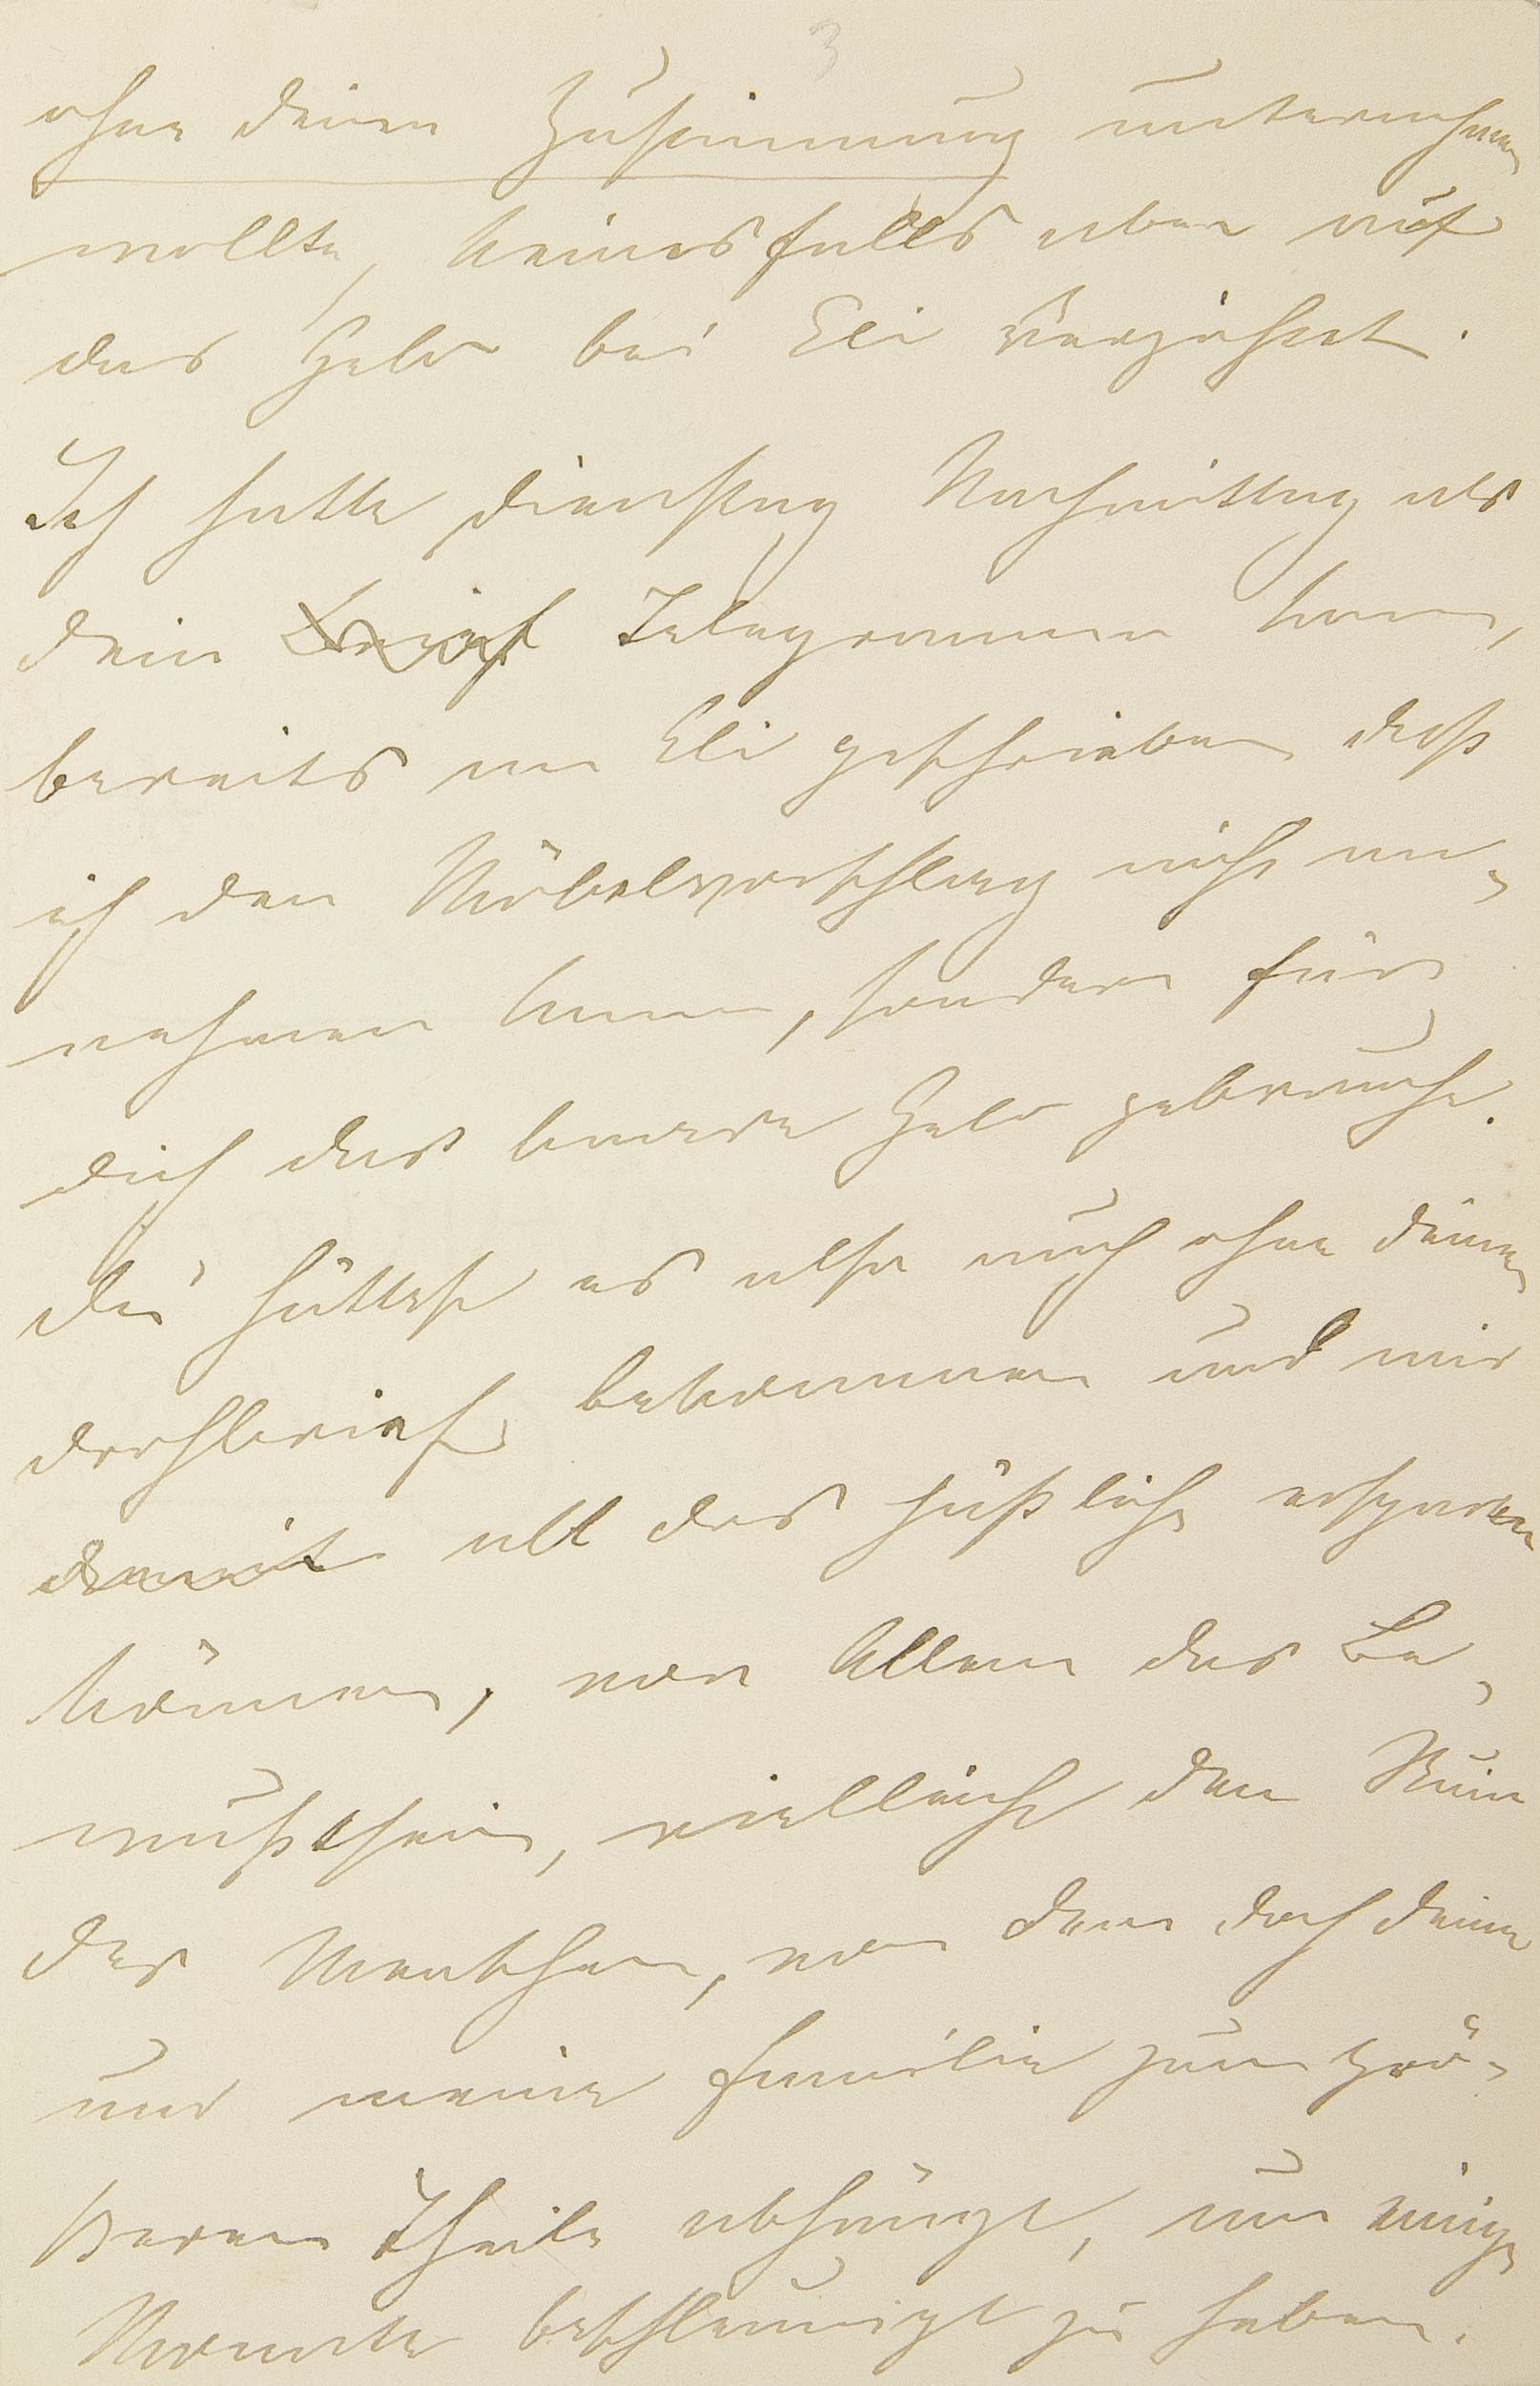 3
ohne deine Zustimmung unternehmen
wollte, keinesfalls aber auf
das Geld bei Eli verzichtet.
Ich hatte Dienstag Nachmittag als
dein Brief Telegramm kam,
bereits an Eli geschrieben daß
ich den Möbelvorschlag nicht an-
nehmen kann, sondern für
dich das baare Geld gebrauche.
du hättest es also auch ohne deinen
Drohbrief bekommen und mir
damit all das häßliche ersparen
können, vor Allem das Be-
wußtsein, vielleicht den Ruin
des Menschen, von dem doch deine
und meine Familie zum grö-
ßeren Theile abhängt, um einige
Monate beschleunigt zu haben.